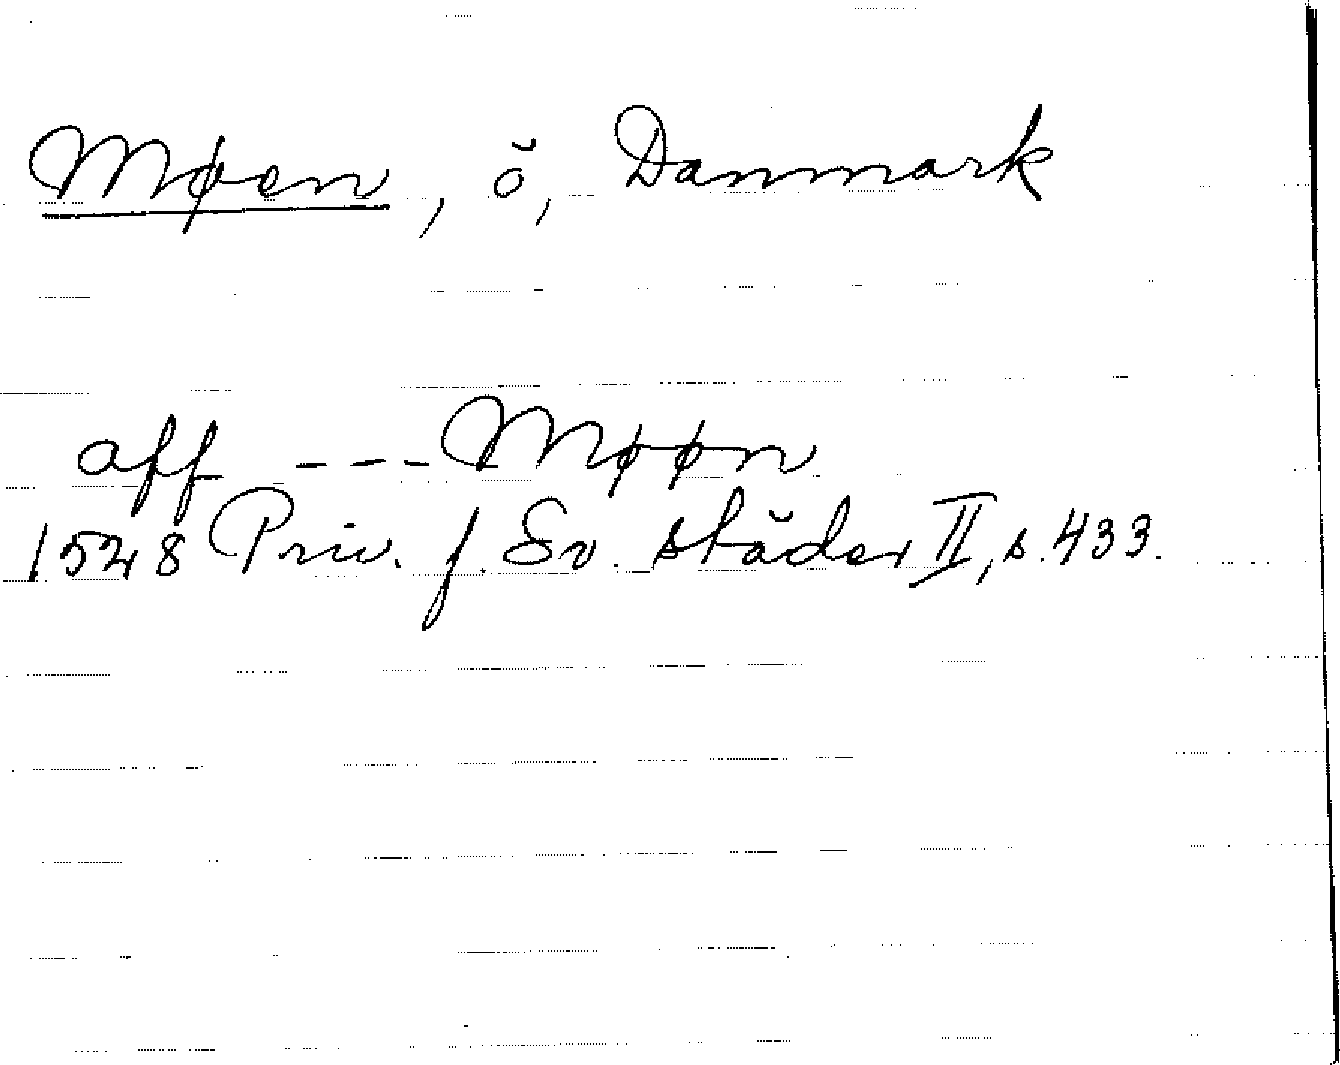 Møen, ö, Danmark
aff --- Møøn
1528 Priv. f. Sv. städer II, s. 433.